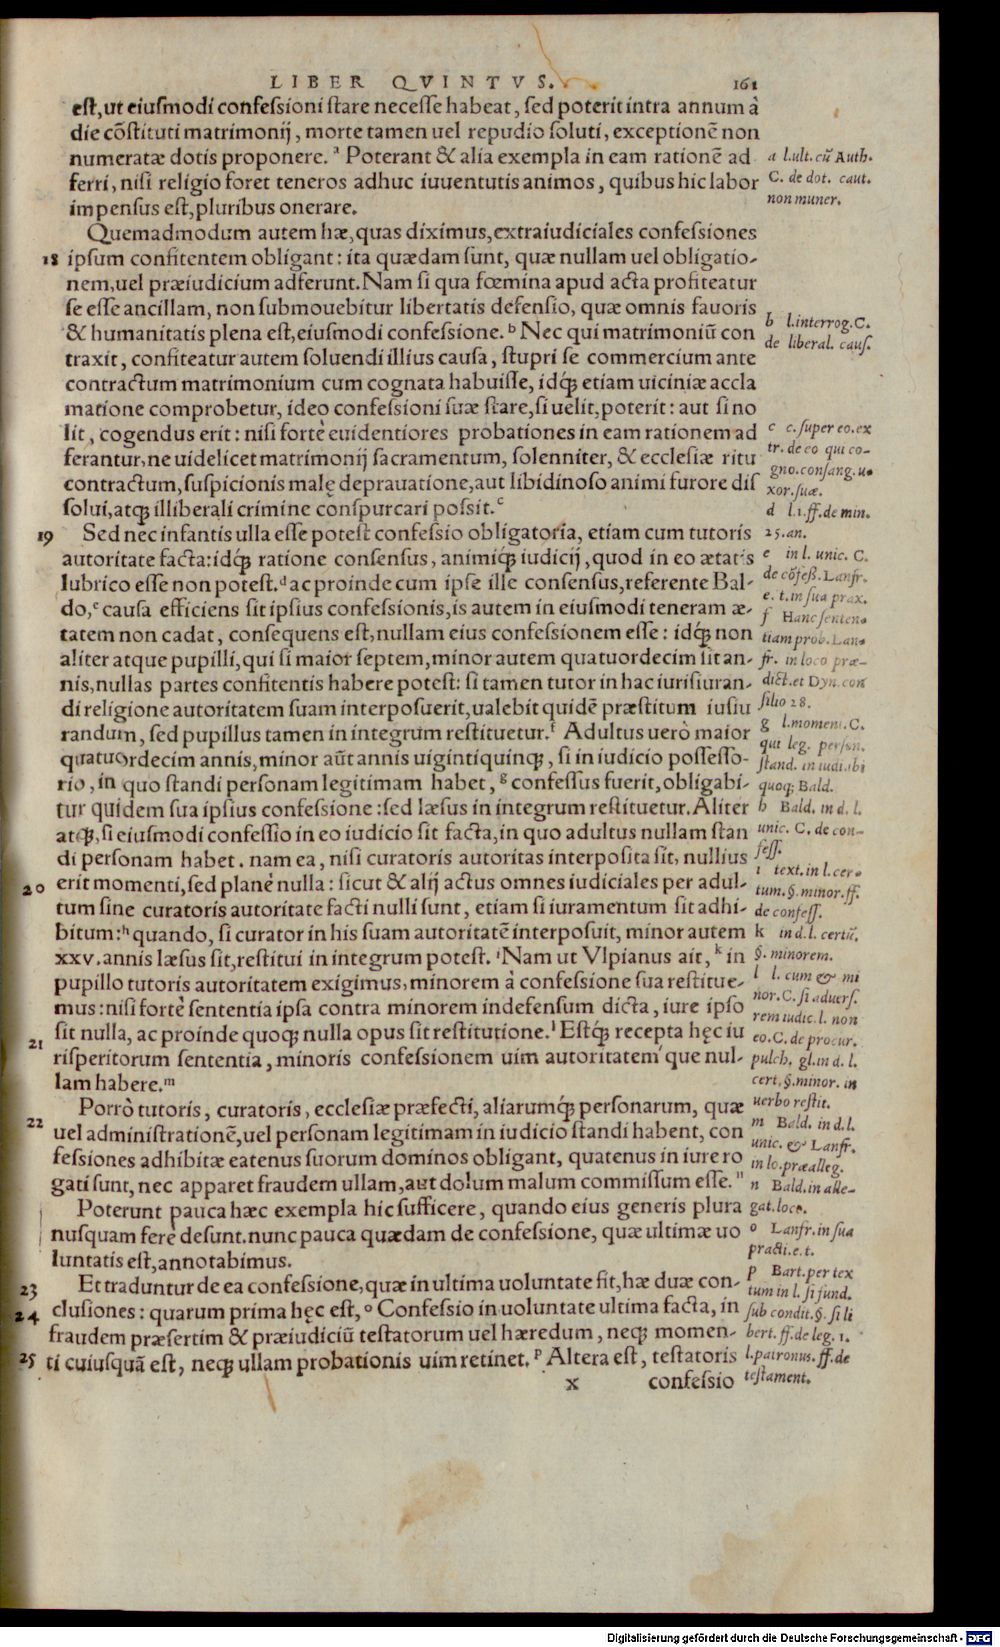 LIBER QVINTVS. 161
est, ut eiusmodi confessioni stare necesse habeat, sed poterit intra annum à
die cōstituti matrimonij, morte tamen uel repudio soluti, exceptionē non
numeratæ dotis proponere.ᵃ Poterant & alia exempla in eam rationē ad
ferri, nisi religio foret teneros adhuc iuuentutis animos, quibus hic labor
impensus est, pluribus onerare.
Quemadmodum autem hæ, quas diximus, extraiudiciales confessiones
18 ipsum confitentem obligant: ita quædam sunt, quæ nullam uel obligatio-
nem, uel præiudicium adferunt. Nam si qua fœmina apud acta profiteatur
se esse ancillam, non submouebitur libertatis defensio, quæ omnis fauoris
& humanitatis plena est, eiusmodi confessione.ᵇ Nec qui matrimoniū con
traxit, confiteatur autem soluendi illius causa, stupri se commercium ante
contractum matrimonium cum cognata habuisse, idq́; etiam uiciniæ accla
matione comprobetur, ideo confessioni suæ stare, si uelit, poterit: aut si no
lit, cogendus erit: nisi fortè euidentiores probationes in eam rationem ad
ferantur, ne uidelicet matrimonij sacramentum, solenniter, & ecclesiæ ritu
contractum, suspicionis malę deprauatione, aut libidinoso animi furore dis
solui, atq; illiberali crimine conspurcari possit.ᶜ
19 Sed nec infantis ulla esse potest confessio obligatoria, etiam cum tutoris
autoritate facta: idq́; ratione consensus, animiq́; iudicij, quod in eo ætatis
lubrico esse non potest.ᵈ ac proinde cum ipse ille consensus, referente Bal-
do,ᵉ causa efficiens sit ipsius confessionis, is autem in eiusmodi teneram æ-
tatem non cadat, consequens est, nullam eius confessionem esse: idq́; non
aliter atque pupilli, qui si maior septem, minor autem quatuordecim sit an-
nis, nullas partes confitentis habere potest: si tamen tutor in hac iurisiuran-
di religione autoritatem suam interposuerit, ualebit quidē præstitum iusiu
randum, sed pupillus tamen in integrum restituetur.ᶠ Adultus uerò maior
quatuordecim annis, minor aūt annis uigintiquinq;, si in iudicio possesso-
rio, in quo standi personam legitimam habet, ᵍ confessus fuerit, obligabi-
tur quidem sua ipsius confessione: sed læsus in integrum restituetur. Aliter
atq́;, si eiusmodi confessio in eo iudicio sit facta, in quo adultus nullam stan
di personam habet. nam ea, nisi curatoris autoritas interposita sit, nullius
20 erit momenti, sed planè nulla: sicut & alij actus omnes iudiciales per adul-
tum sine curatoris autoritate facti nulli sunt, etiam si iuramentum sit adhi-
bitum:ʰ quando, si curator in his suam autoritatē interposuit, minor autem
xxv. annis læsus sit, restitui in integrum potest.ⁱ Nam ut Vlpianus ait, ᵏ in
pupillo tutoris autoritatem exigimus, minorem à confessione sua restitue-
mus: nisi fortè sententia ipsa contra minorem indefensum dicta, iure ipso
21 sit nulla, ac proinde quoq; nulla opus sit restitutione.ˡ Estq́; recepta hęc iu
risperitorum sententia, minoris confessionem uim autoritatem que nul-
lam habere.ᵐ
22 Porrò tutoris, curatoris, ecclesiæ præfecti, aliarumq́; personarum, quæ
uel administrationē, uel personam legitimam in iudicio standi habent, con
fessiones adhibitæ eatenus suorum dominos obligant, quatenus in iure ro
gati sunt, nec apparet fraudem ullam, aut dolum malum commissum esse.ⁿ
Poterunt pauca hæc exempla hic sufficere, quando eius generis plura
nusquam ferè desunt. nunc pauca quædam de confessione, quæ ultimæ uo
luntatis est, annotabimus.
23 Et traduntur de ea confessione, quæ in ultima uoluntate fit, hæ duæ con-
24 clusiones: quarum prima hęc est, ᵒ Confessio in uoluntate ultima facta, in
fraudem præsertim & præiudiciū testatorum uel hæredum, neq; momen-
25 ti cuiusquā est, neq; ullam probationis uim retinet.ᵖ Altera est, testatoris
x confessio
a l.ult. cū Auth.
C. de dot. caut.
non numer.
b l.interrog. C.
de liberal. caus.
c c. super eo. ex
tr. de eo qui co-
gno. consang. u-
xor. suæ.
d l.1. ff. de min.
25. an.
e in l. unic. C.
de cōfess. Lanfr.
e. t. in sua prax.
f Hanc senten-
tiam prob. Lan-
fr. in loco præ-
dict. et Dyn. con
silio 28.
g l.moment. C.
qui leg. person.
stand. in iudi. ibi
quoq; Bald.
h Bald. in d. l.
unic. C. de con-
fess.
i text. in l. cer-
tum. §. minor. ff.
de confess.
k in d. l. certū.
§. minorem.
l l. cum & mi
nor. C. si aduers.
rem iudic. l. non
eo. C. de procur.
pulch. gl. in d. l.
cert. §. minor. in
uerbo restit.
m Bald. in d. l.
unic. & Lanfr.
in lo. præalleg.
n Bald. in alle-
gat. loco.
o Lanfr. in sua
practi. e. t.
p Bart. per tex
tum in l. si fund.
sub condit. §. si li
bert. ff. de leg. 1.
l. patronus. ff. de
testament.
Digitalisierung gefördert durch die Deutsche Forschungsgemeinschaft - DFG